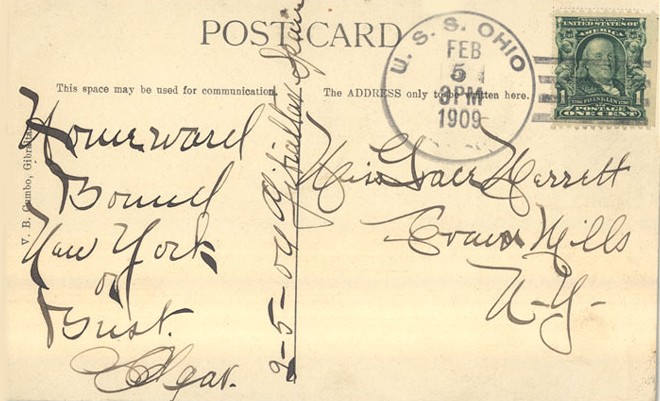 POST CARD
This space may be used for communication.
The ADDRESS only to be written here.
U. S. S. OHIO
FEB
5
3PM
1909
UNITED STATES OF
AMERICA
FRANKLIN
1 1
POSTAGE
ONE CENT
V. B. Cumbo, Gibraltar
Homeward
Bound
New York
or
Bust.
2-5-09 Gibraltar Spain
Miss Grace Herrett
Evans Mills
N-Y-